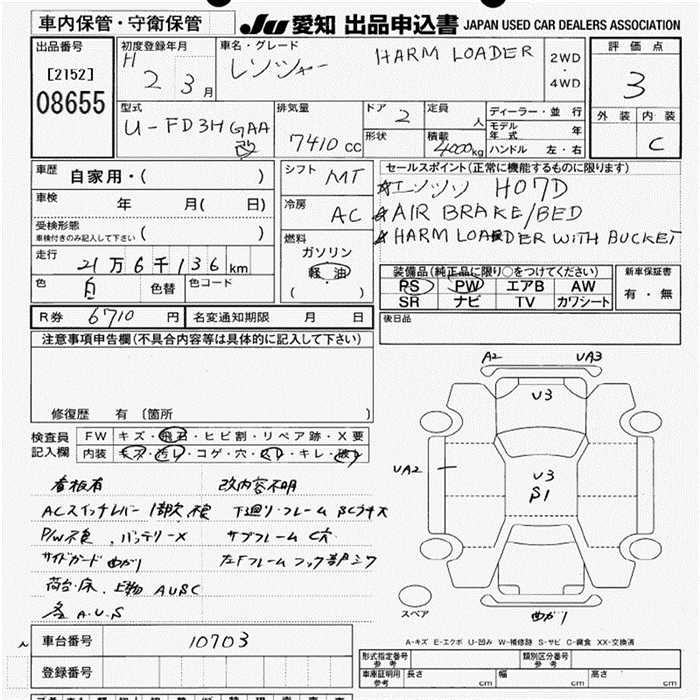 車内保管・守衛保管
JU 愛知 出品申込書 JAPAN USED CAR DEALERS ASSOCIATION
出品番号
[2152]
08655
初度登録年月
H 2 3 月
車名・グレード
レンジャー HARM LOADER
2WD
・
4WD
評価点
3
外装 内装
C
型式
U-FD3HGAA
改
排気量
7410 CC
ドア
2
形状
定員
人
積載
4000kg
ディーラー・並行
モデル年式 年
ハンドル 左・右
車歴 自家用・( )
車検 年 月( 日)
受検形態
車検付きのみ記入して下さい ( )
走行 21万6千136 km
色 白 色替 色コード
シフト MT
冷房 AC
燃料
ガソリン
軽油
( ・ )
セールスポイント(正常に機能するものに限ります)
☆エンジン H07D
☆AIR BRAKE/BED
☆HARM LOADER WITH BUCKET
装備品(純正品に限り○をつけてください)
PS PW エアB AW
SR ナビ TV カワシート
新車保証書
有・無
後日品
R券 6710 円 名変通知期限 月 日
注意事項申告欄(不具合内容等は具体的に記入して下さい)
修復歴 有 〔箇所 〕
検査員
記入欄
FW キズ・飛石・ヒビ割・リペア跡・X要
内装 キズ・汚レ・コゲ・穴・・キレ・破レ
看板有 改内容不明
ACスイッチレバー
P/W不良 バッテリーX サブフレーム C穴
サイドガード曲がり 左下フレーム
荷台・床 上物 AUSC
各 A.U.S
A2 UA3
U3
UA2
U3
S1
曲がり
スペア
A-キズ E-エクボ U-凹み W-補修跡 S-サビ C-腐食 XX-交換済
車台番号 10703
登録番号
形式指定番号
参考
類別区分番号
参考
車庫証明用
参考
長さ cm 幅 cm 高さ cm